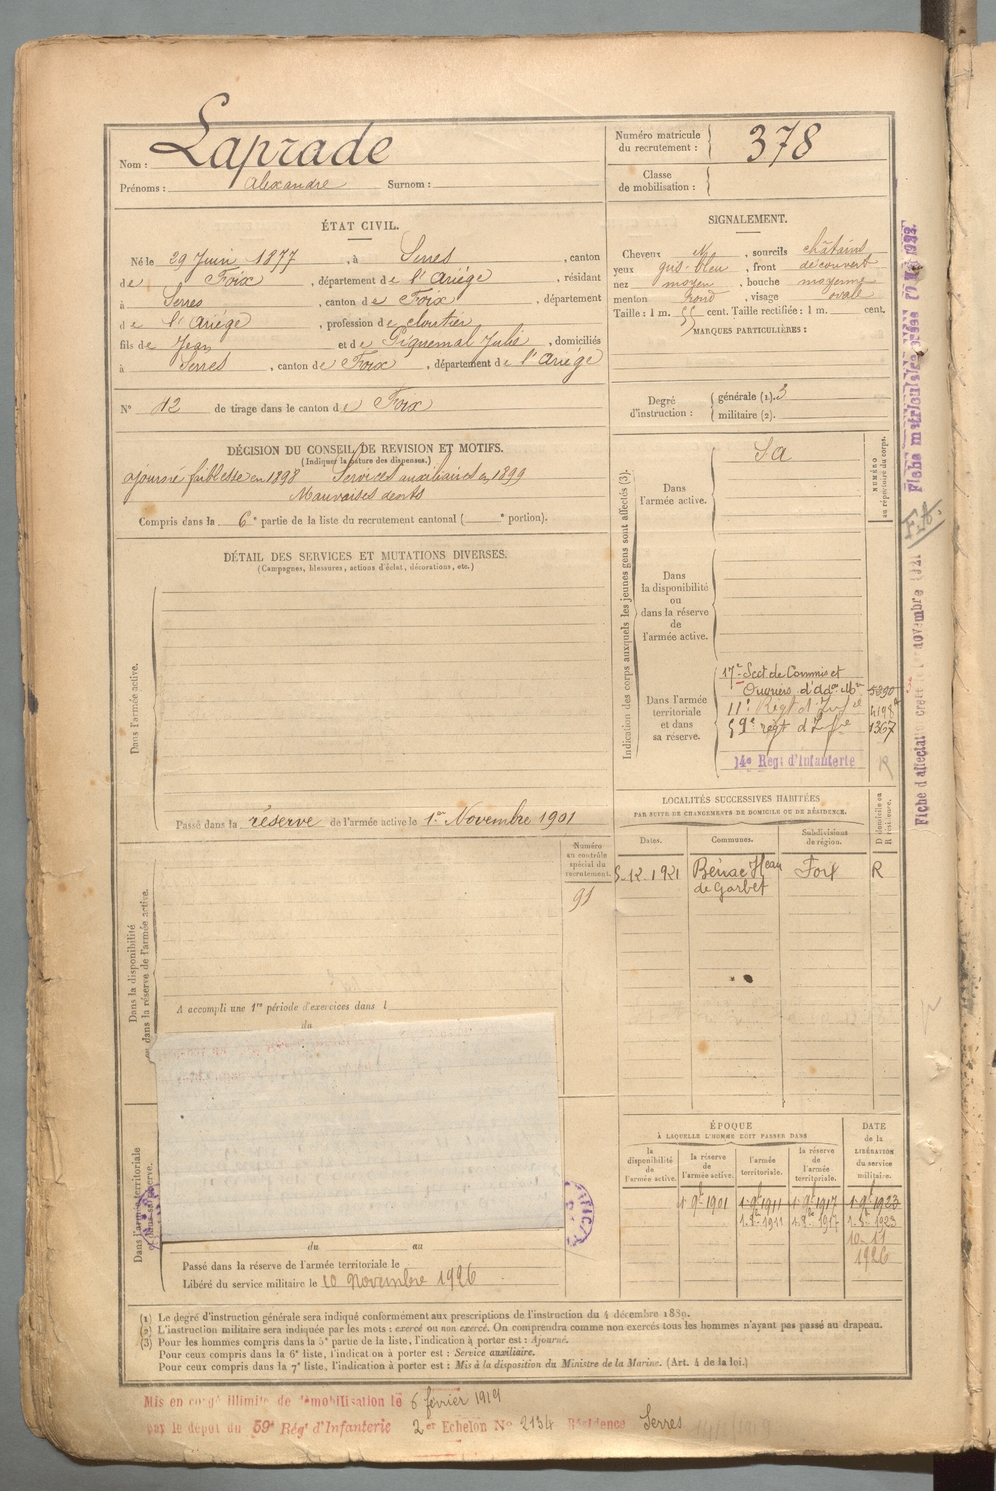 Nom : Laprade
Prénoms : Alexandre Surnom :
Numéro matricule du recrutement : 378
Classe de mobilisation :
ÉTAT CIVIL.
Né le 29 Juin 1877, à Serres, canton
de Foix, département de l'Ariège, résidant
à Serres, canton de Foix, département
de l'Ariège, profession de cloutier
fils de Jean et de Piquemal Julie, domiciliés
à Serres, canton de Foix, département de l'Ariège
N° 12 de tirage dans le canton de Foix
SIGNALEMENT.
Cheveux , sourcils châtains
yeux gris-bleu, front découvert
nez moyen, bouche moyenne
menton rond, visage ovale
Taille : 1 m. 55 cent. Taille rectifiée : 1 m. cent.
MARQUES PARTICULIÈRES :
Degré d'instruction : générale (1). 3
militaire (2).
DÉCISION DU CONSEIL DE REVISION ET MOTIFS.
(Indiquer la nature des dispenses.)
ajourné faiblesse en 1898 Services auxiliaires en 1899
Mauvaises dents
Compris dans la 6e partie de la liste du recrutement cantonal ( e portion).
DÉTAIL DES SERVICES ET MUTATIONS DIVERSES.
(Campagnes, blessures, actions d'éclat, décorations, etc.)
Dans l'armée active.
Passé dans la réserve de l'armée active le 1er Novembre 1901
Indication des corps auxquels les jeunes gens sont affectés (3).
NUMÉRO au répertoire du corps.
Dans l'armée active.
Sa
Dans la disponibilité ou dans la réserve de l'armée active.
Dans l'armée territoriale et dans sa réserve.
17e Sect. de Commis et
Ouvriers d'Adon Mre 5390
11e Regt d'Infie
59e régt d'Infie 1367
14e Regt d'Infanterie R
LOCALITÉS SUCCESSIVES HABITÉES
PAR SUITE DE CHANGEMENTS DE DOMICILE OU DE RÉSIDENCE.
Dates. Communes. Subdivisions de région. D domicile ou R résidence.
5-12-1921 Bénac Hau de Garbet Foix R
Numéro au contrôle spécial du recrutement.
91
Dans la disponibilité ou dans la réserve de l'armée active.
A accompli une 1re période d'exercices dans l
du
Dans l'armée territoriale
et dans sa réserve.
du au
Passé dans la réserve de l'armée territoriale le
Libéré du service militaire le 10 Novembre 1926
ÉPOQUE
À LAQUELLE L'HOMME DOIT PASSER DANS
la disponibilité de l'armée active.
la réserve de l'armée active.
l'armée territoriale.
la réserve de l'armée territoriale.
DATE de la LIBÉRATION du service militaire.
1 9e 1901 1 9e 1911 1 9e 1917 1 9e 1923
1923
10-11
1926
(1) Le degré d'instruction générale sera indiqué conformément aux prescriptions de l'instruction du 4 décembre 1889.
(2) L'instruction militaire sera indiquée par les mots : exercé ou non exercé. On comprendra comme non exercés tous les hommes n'ayant pas passé au drapeau.
(3) Pour les hommes compris dans la 5e partie de la liste, l'indication à porter est : Ajourné.
Pour ceux compris dans la 6e liste, l'indication à porter est : Service auxiliaire.
Pour ceux compris dans la 7e liste, l'indication à porter est : Mis à la disposition du Ministre de la Marine. (Art. 4 de la loi.)
Mis en congé illimité de démobilisation le 6 février 1919
par le dépôt du 59e Rég' d'Infanterie 2e Echelon N° 2134 Résidence Serres
Fiche d'affectation novembre 1921
Fiche matriculaire